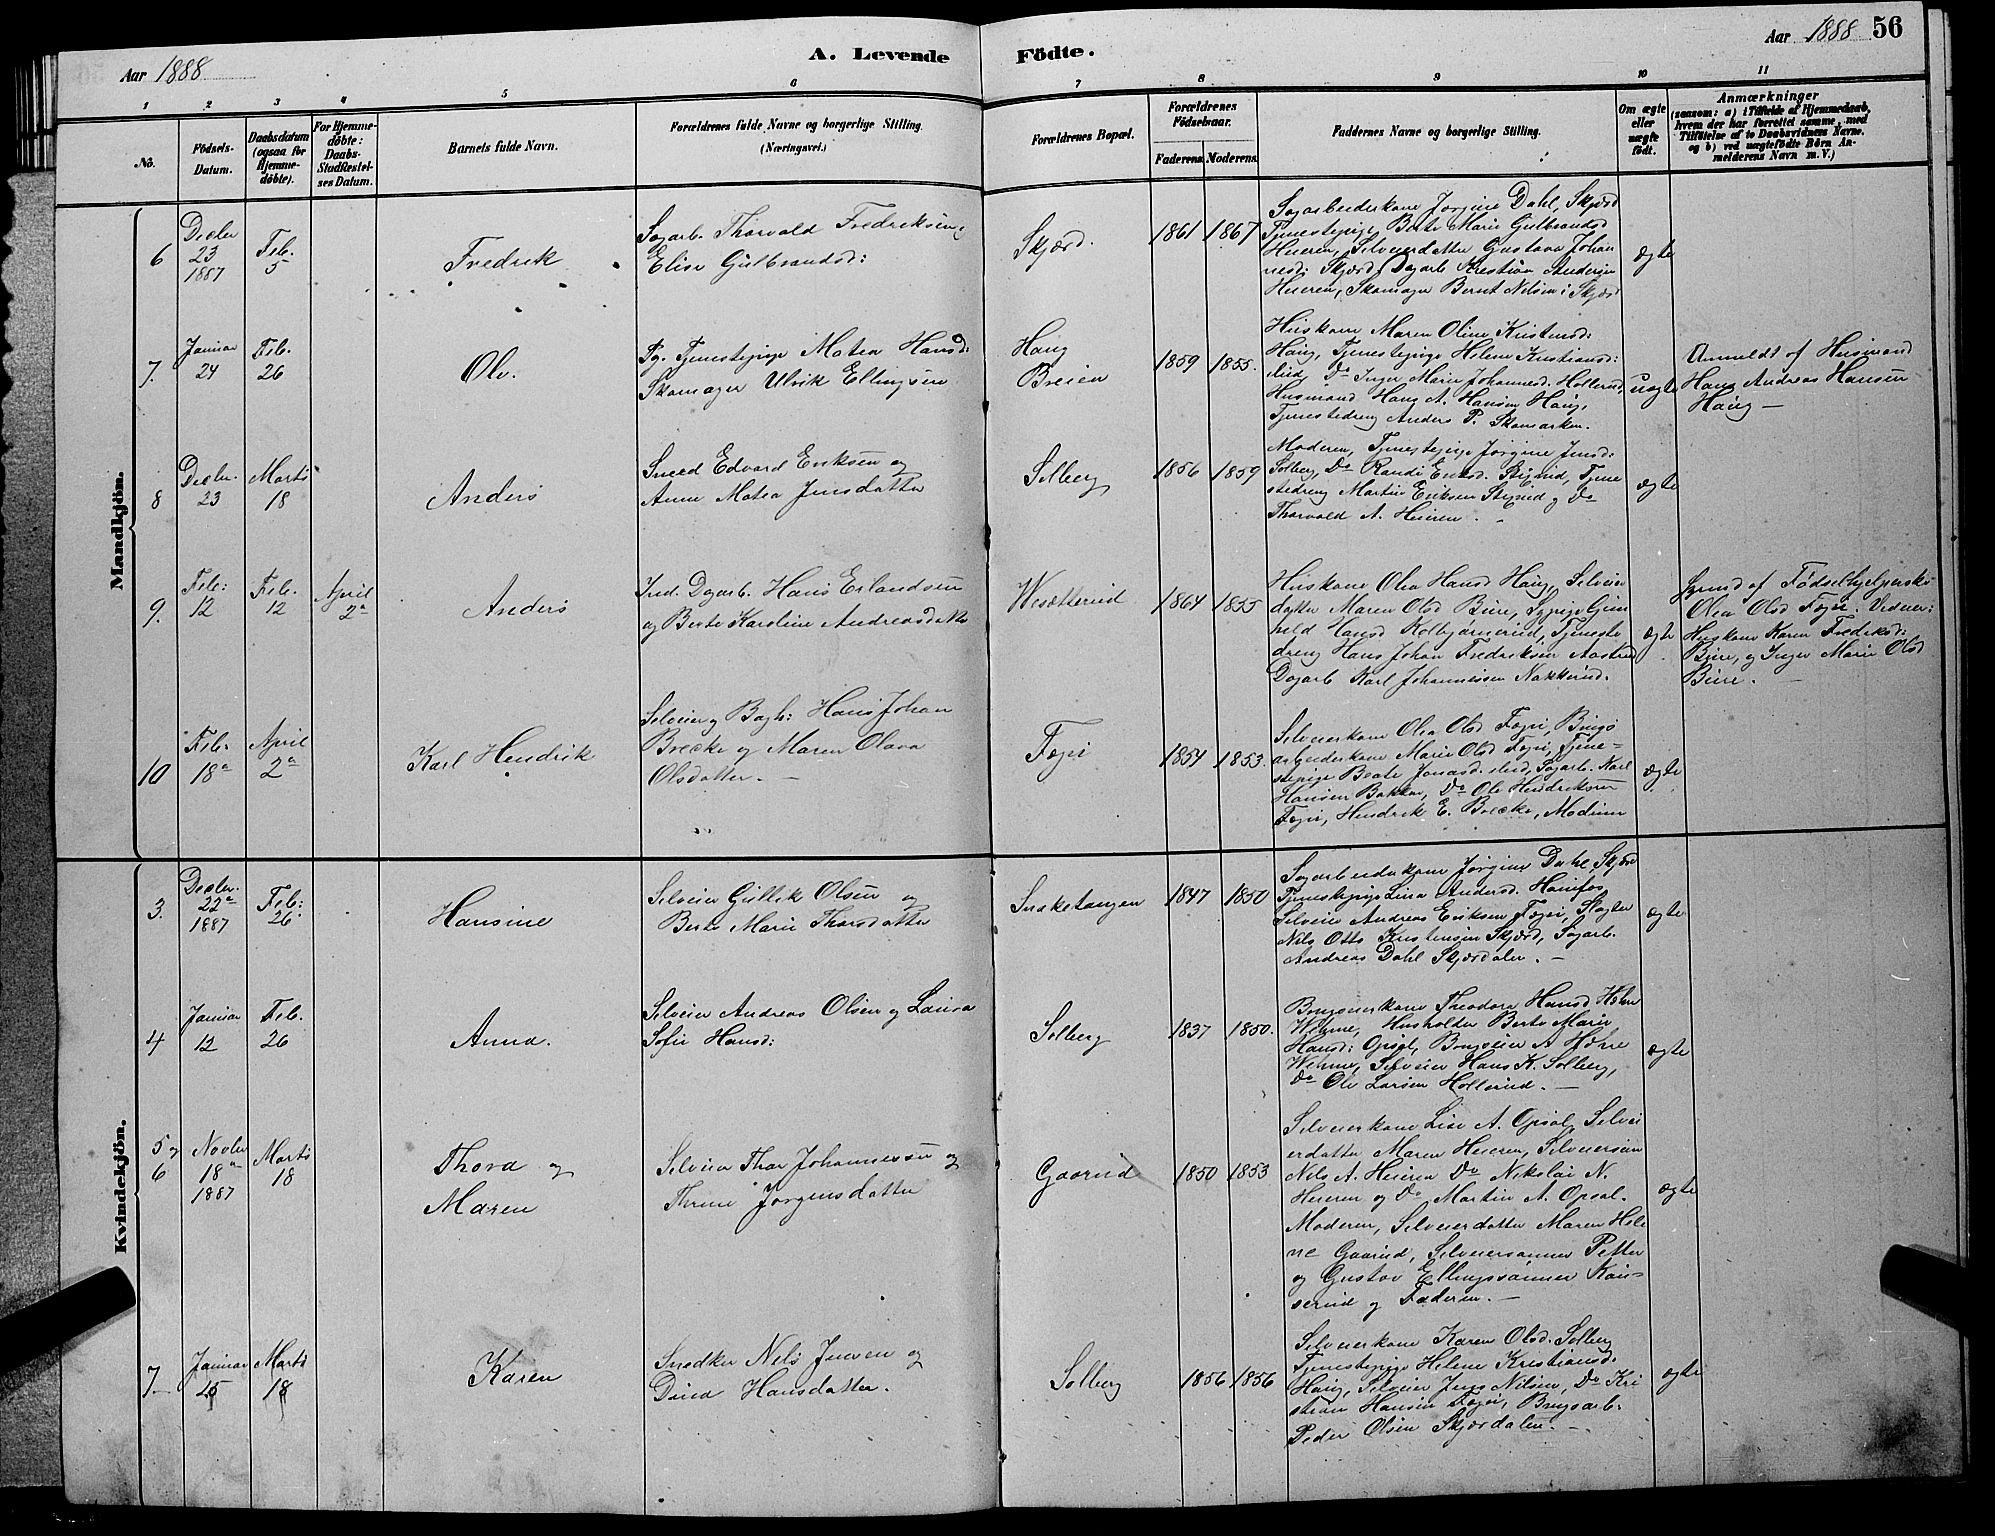 Aar 1888
A. Levende
Födte.
Aar 1888
56
1
2
3
4
5
6
7
8
9
10
11
No.
Födsels-
Datum.
Daabsdatum
(ogsaa for
Hjemme-
döbte).
For Hjemme-
döbte:
Daabs-
Stadfæstel-
ses Datum.
Barnets fulde Navn.
Forældrenes fulde Navne og borgerlige Stilling.
(Næringsvei.)
Forældrenes Bopæl.
Forældrenes
Födselsaar.
Faderens.
Moderens.
Faddernes Navne og borgerlige Stilling.
Om ægte
eller
uægte
födt.
Anmærkninger
(saasom: a) i Tilfælde af Hjemmedaab,
hvem der har forrettet samme, med
Tilföielse af to Daabsvidners Navne,
og b) ved uægtefödte Börn An-
melderens Navn m. V.)
Mandkjön.
6
Decbr
23
1887
Feb.
5
Fredrik
Sagarb. Thorvald Fredriksen
Elise Gulbrandsd:
Skjærd.
1861
1867
Sagarbeiderkone Jørgine Dahl Skjærd
Tjenestepige Berte Marie Gulbrandsd
Heieren, Selveierdatter Gustava Johan
nesd: Skjærd, Dagarb. Kristian Andersen
Heieren, Skomager Bernt Nilsen: Skjærd
ægte
7.
Januar
24
Feb.
26
Ole.
Pg. Tjenestepige Matea Hansd:
Skomager Ulrik Ellingsen
Haug
Breien
1859
1855.
Huskone Maren Oline Kristensd:
Haug, Tjenestepige Helene Kristiansd:
Do Inger Marie Johannesd. Hollerud,
Husmand Hans A. Hansen Haug,
Tjenestedreng Anders P. Skomarken.
uægte
Anmeldt af Husmand
Hans Andreas Hansen
Haug —
8
Decbr.
23
Marts
18
Anders
Smed Edvard Eriksen og
Anne Matea Jensdatter
Solberg
1856
1859
Moderen, Tjenestepige Jørgine Jensd:
Solberg, Do Randi Eriksd. Tjene
stedreng Martin Eriksen og Do
Thorvald A. Heieren.
ægte
9.
Feb:
12
Feb.
12
April
2a
Anders
Ind. Dagarb. Hans Erlandsen
og Berte Karoline Andreasdatter
Wesætterud
1864
1855
Huskone Olea Hansd Haug, Selveier
datter Maren Olsd Bure, Sypige Gun
hild Hansd Kolbjørnerud, Tjeneste
dreng Hans Johan Fredriksen Aasterud
Dagarb Karl Johannessen Nakkerud.
ægte
af Fødselhjelperske
Olea Olsd Fegri. Vidner:
Huskone Karen Fredriksd:
Bure, og Inger Marie Olsd
Bure. —
10
Feb.
18a
April
2a
Karl Hendrik
Selveier og Bagh: Hans Johan
Brecke og Maren Olava
Olsdatter. —
Fegri
1854
1853.
Selveierkone Olea Olsd Fegri, Brugs
arbeiderkone Marie Olsd Fegri, Tjene-
stepige Beate Jonasd. Sagarb. Karl
Hansen Bakken, Do Ole Hendriksen
Fegri, Hendrik E. Brecke, Modum
ægte
Kvindekjön.
3.
Decbr.
22a
1887
Feb:
26
Hansine
Selveier Gullik Olsen og
Berte Marie Thorsdatter
Snaketangen
1847
1850
Sagarbeiderkone Jørgine Dahl, Skjærd
Tjenestepige Lina Andersd. Hønefos
Selveier Andreas Eriksen Fegri, Slagter
Nils Otto Kristensen Skjærd, Sagarb.
Andreas Dahl Skjærdalen. —
ægte
4
Januar
12
Feb.
26
Anna.
Selveier Andreas Olsen og Laura
Sofie Hansd:
Solberg
1837
1850.
Brugseierkone Theodora Hansd
Wehme, Husholder Berte Marie
Hansd: Opsal, Brugseier A
Wehme, Selveier Hans K. Solberg,
Do Ole Larsen Hollerud. —
ægte
5 og
6
Novbr
18a
1887
Marts
18
Thora og
Maren
Selveier Thor Johannessen og
Thrine Jørgensdatter
Gaarud
1850
1853
Selveierkone Lise A. Opsal, Selvei
erdatter Maren Heieren, Selveiersøn
Nils A. Heieren Do Nikolai N.
Heieren og Do Martin A. Opsal.
Moderen, Selveierdatter Maren Hele
ne Gaarud, Selveiersønner Petter
og Gustav Ellingssønner Kau-
serud og Faderen. —
ægte
7
Januar
25
Marts
18
Karen
Snedker Nils Jensen og
Dina Hansdatter.
Solberg
1856
1856
Selveierkone Karen Olsd. Solberg
Tjenestepige Helene Kristiansd.
Haug, Selveier Jens Nilsen, Do Kri
stian Hansen Fegri, Brugsarb.
Peder Olsen Skjærdalen. —
ægte